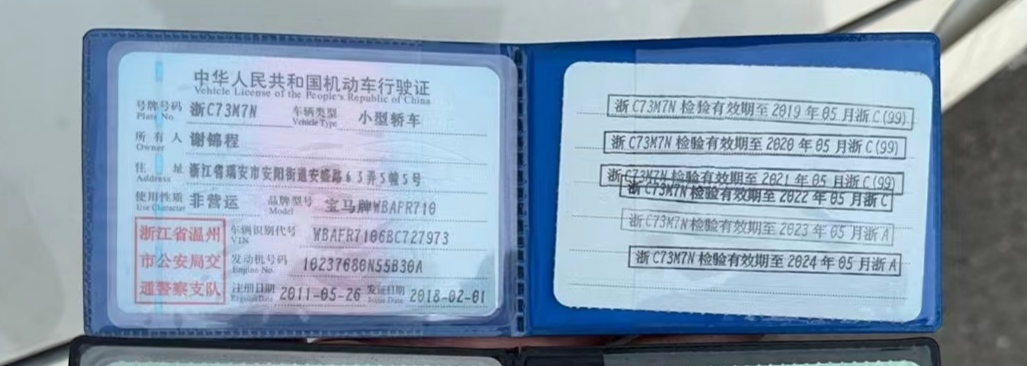 中华人民共和国机动车行驶证
Vehicle License of the People's Republic of China
号牌号码 浙C73M7N 车辆类型 小型轿车
Plate No. Vehicle Type
所有人 谢锦程
Owner
住址 浙江省瑞安市安阳街道安盛路63弄5幢5号
Address
使用性质 非营运 品牌型号 宝马牌WBAFR710
Use Character Model
浙江省温州
市公安局交
通警察支队
车辆识别代号 WBAFR7106BC727973
VIN
发动机号码 10237680N55B30A
Engine No.
注册日期 2011-05-26 发证日期 2018-02-01
Register Date Issue Date
浙C73M7N 检验有效期至 2019 年 05 月浙C(99)
浙C73M7N 检验有效期至 2020 年 05 月浙C(99)
浙C73M7N 检验有效期至 2021 年 05 月浙C(99)
浙C73M7N 检验有效期至 2022 年 05 月浙C
浙C73M7N 检验有效期至 2023 年 05 月浙A
浙C73M7N 检验有效期至 2024 年 05 月浙A